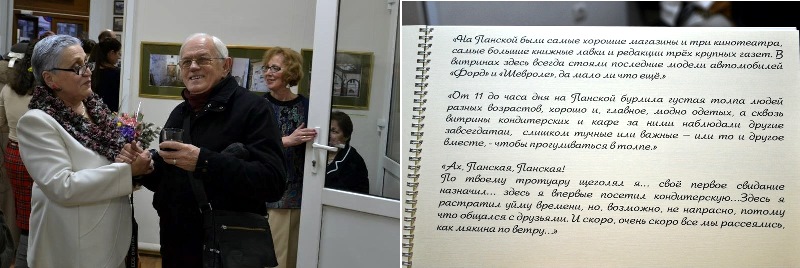 «На Панской были самые хорошие магазины и три кинотеатра,
самые большие книжные лавки и редакции трёх крупных газет. В
витринах здесь всегда стояли последние модели автомобилей
«Форд» и «Шевроле», да мало ли что ещё.»
«От 11 до часа дня на Панской бурлила густая толпа людей
разных возрастов, хорошо и, главное, модно одетых, а сквозь
витрины кондитерских и кафе за ними наблюдали другие
завсегдатаи, слишком тучные или важные – или то и другое
вместе, - чтобы прогуливаться в толпе.»
«Ах, Панская, Панская!
По твоему тротуару щеголял я... своё первое свидание
назначил... здесь я впервые посетил кондитерскую...Здесь я
растратил уйму времени, но, возможно, не напрасно, потому
что общался с друзьями. И скоро, очень скоро все мы рассеялись,
как мякина по ветру...»